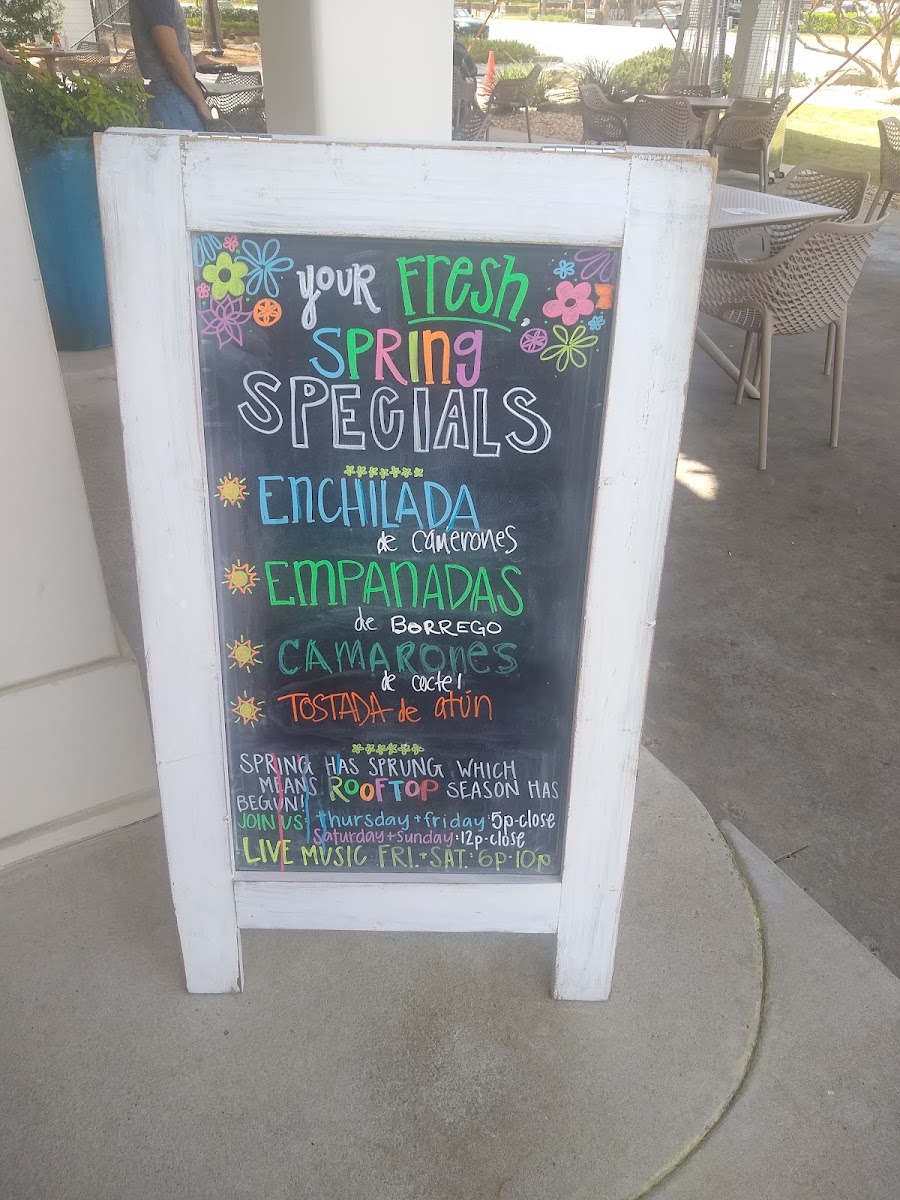 your Fresh,
SPRING
SPECIALS
ENCHILADA
de camerones
EMPANADAS
de BORREGO
CAMARONES
de coctel
TOSTADA de atún
SPRING HAS SPRUNG WHICH
MEANS ROOFTOP SEASON HAS
BEGUN!
JOIN US: thursday + friday: 5p-close
Saturday + Sunday: 12p-close
LIVE MUSIC FRI. + SAT: 6p-10p